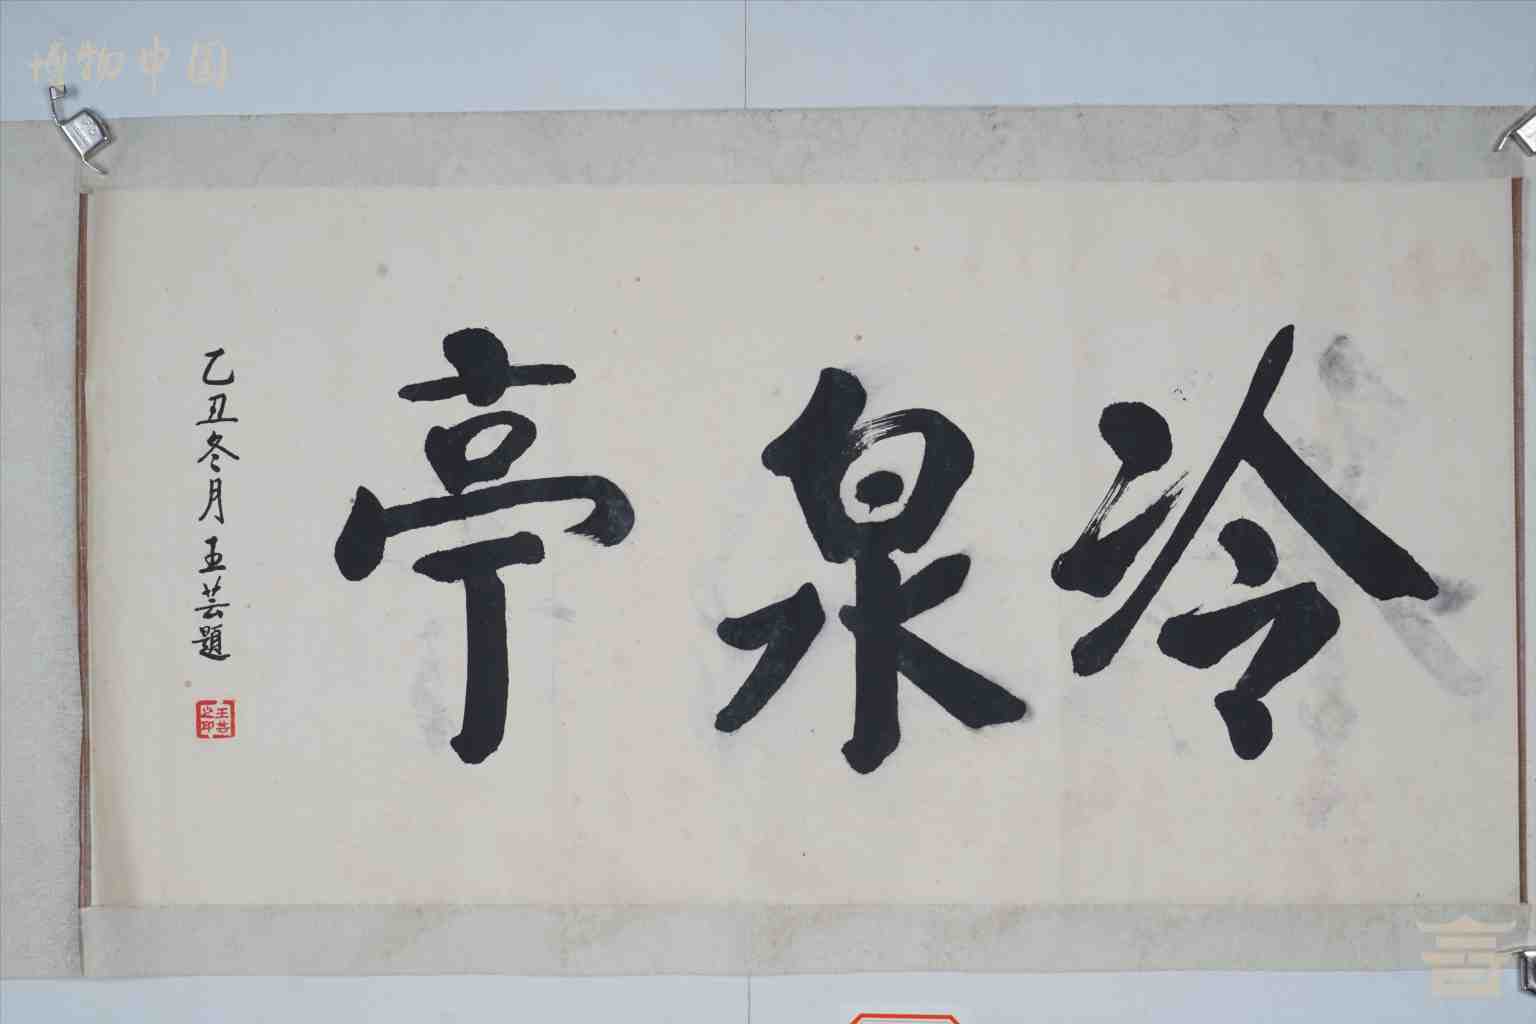 冷泉亭
乙丑冬月王芸題
王芸之印
博物中国